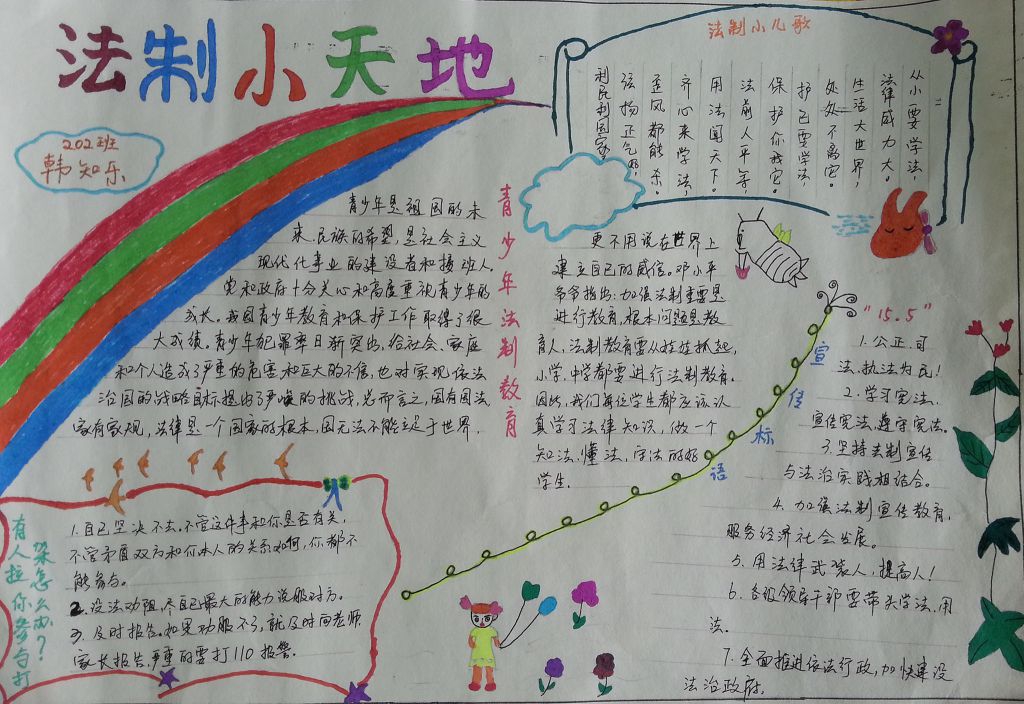 法制小天地
202班
韩知乐
法制小儿歌
从小要学法，
法律威力大。
生活大世界，
处处不离它。
护己要学法，
保护你我它。
法前人平等，
用法闯天下。
齐心来学法，
歪风都能杀。
弘扬正气歌，
利民利国家
青少年法制教育
青少年是祖国的未
来，民族的希望，是社会主义
现代化事业的建设者和接班人。
党和政府十分关心和高度重视青少年的
成长。我国青少年教育和保护工作取得了很
大成绩。青少年犯罪率日渐突出，给社会、家庭
和个人造成了严重的危害和巨大的不信，也对实现依法
治国的战略目标提出了严峻的挑战，总而言之，国有国法
家有家规，法律是一个国家的根本，国无法不能立足于世界，
更不用说在世界上
建立自己的威信。邓小平
爷爷指出：加强法制重要是
进行教育，根本问题是教
育人，法制教育要从娃娃抓起，
小学、中学都要进行法制教育。
因此，我们每位学生都应该认
真学习法律知识，做一个
知法、懂法、守法的好
学生。
有人拉你参与打
架怎么办？
1.自己坚决不去。不管这件事和你是否有关，
不管矛盾双方和你本人的关系如何，你都不
能参与。
2.设法劝阻，尽自己最大的能力说服对方。
3.及时报告。如果劝服不了，就及时向老师
家长报告，严重的要打110报警。
宣传标语
"15.5"
1.公正，司
法、执法为民！
2.学习宪法、
宣传宪法，遵守宪法。
3.坚持法制宣传
与法治实践相结合。
4.加强法制宣传教育，
服务经济社会发展。
5.用法律武装人，提高人！
6.各级领导干部要带头学法、用
法。
7.全面推进依法行政，加快建设
法治政府。